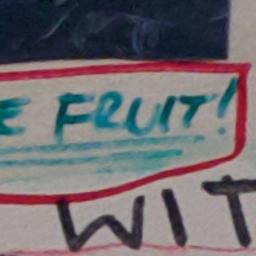 E FRUIT!
WIT